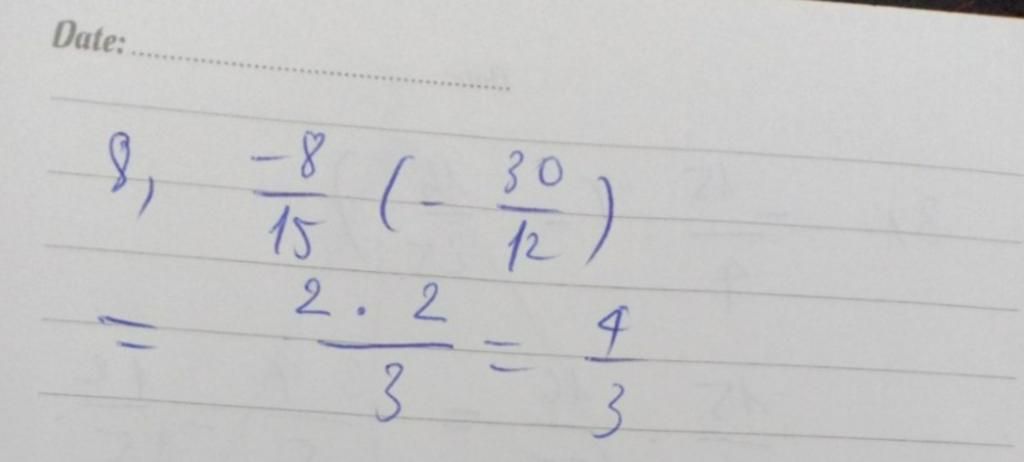 Date:
8, \frac{-8}{15} (- \frac{30}{12})
= \frac{2 . 2}{3} = \frac{4}{3}